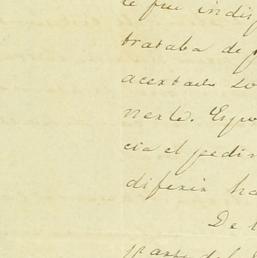 le fue indis
trataba de p
acertado lo
nente. Espo
cia el pedim
diferir ha
De l
parte del